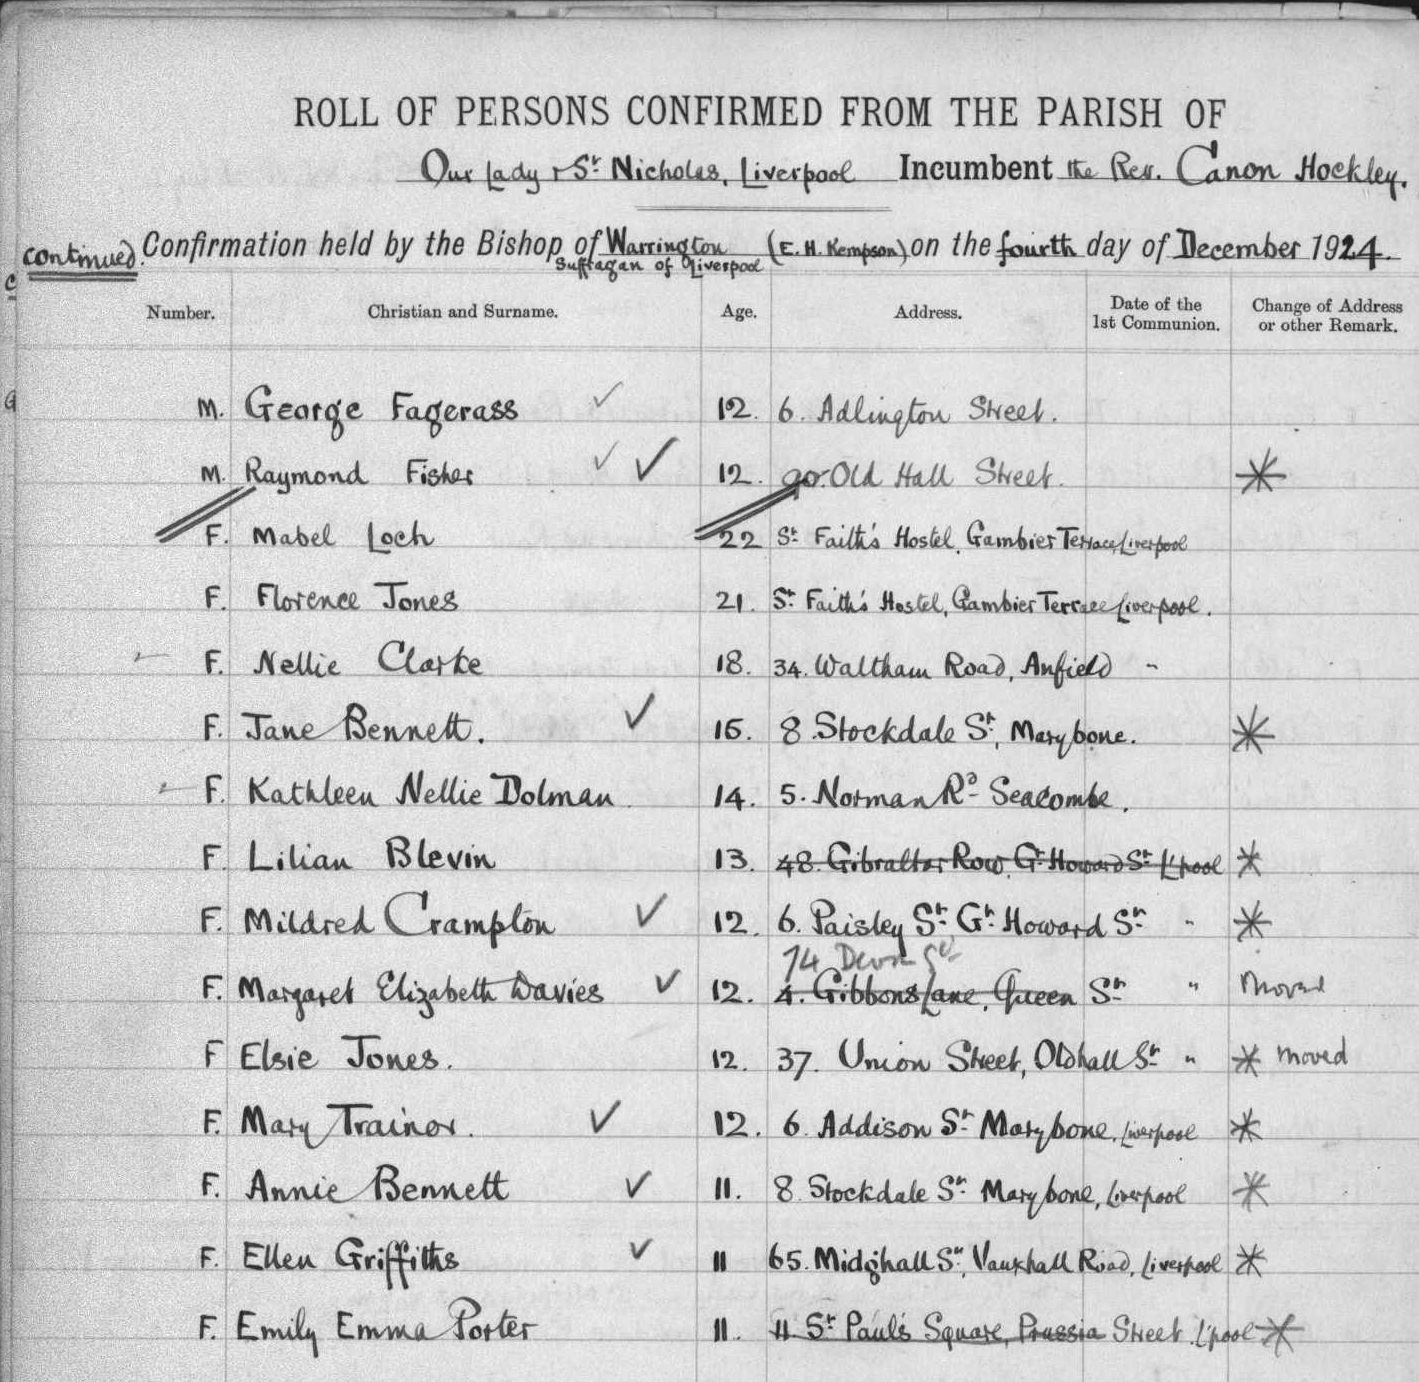 ROLL OF PERSONS CONFIRMED FROM THE PARISH OF
Our Lady & St. Nicholas, Liverpool Incumbent the Rev. Canon Hockley.
continued. Confirmation held by the Bishop of Warrington (E. H. Kempson) on the fourth day of December 1924.
Suffragan of Liverpool
Number. Christian and Surname. Age. Address. Date of the 1st Communion. Change of Address or other Remark.
M. George Fagerass ✓ 12. 6. Adlington Street.
M. Raymond Fisher ✓ ✓ 12. 90. Old Hall Street. *
F. Mabel Loch 22 St. Faith's Hostel, Gambier Terrace, Liverpool
F. Florence Jones 21. St. Faith's Hostel, Gambier Terrace Liverpool.
F. Nellie Clarke 18. 34. Waltham Road, Anfield "
F. Jane Bennett. ✓ 15. 8. Stockdale St., Marybone. *
F. Kathleen Nellie Dolman 14. 5. Norman Rd. Seacombe.
F. Lilian Blevin 13. 48. Gibraltar Row. Gt. Howard St. L'pool *
F. Mildred Crampton ✓ 12. 6. Paisley St. Gt. Howard St. " *
74 Devon St.
F. Margaret Elizabeth Davies ✓ 12. 4. Gibbons Lane, Queen St. " Moved
F Elsie Jones. 12. 37. Union Street, Oldhall St. " * moved
F. Mary Trainor. ✓ 12. 6. Addison St. Marybone, Liverpool *
F. Annie Bennett ✓ 11. 8. Stockdale St. Marybone, Liverpool *
F. Ellen Griffiths ✓ 11 65. Midghall St., Vauxhall Road, Liverpool *
F. Emily Emma Porter 11. 11. St. Paul's Square, Prussia Street. L'pool *